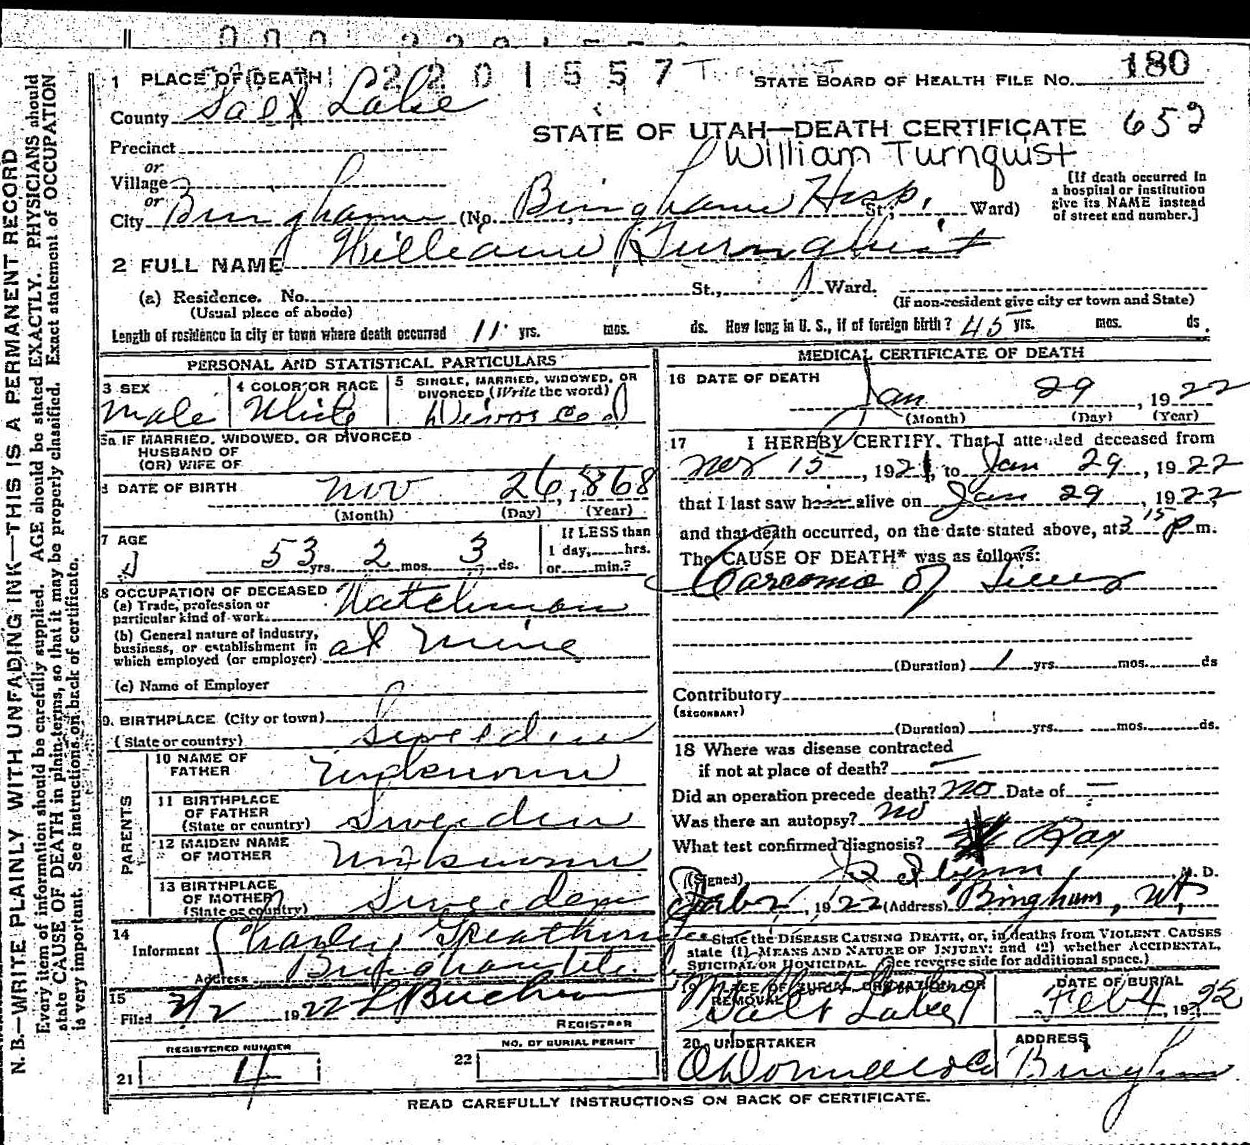 2201557
1 PLACE OF DEATH STATE BOARD OF HEALTH FILE No. 180
County Salt Lake
STATE OF UTAH—DEATH CERTIFICATE 652
Precinct
William Turnquist
or
Village
or
City Bingham (No. Bingham Hosp. St; Ward)
[If death occurred in
a hospital or institution
give its NAME instead
of street and number.]
2 FULL NAME William Turnquist
(a) Residence. No. St., Ward.
(Usual place of abode) (If non-resident give city or town and State)
Length of residence in city or town where death occurred 11 yrs. mos. ds. How long in U. S., if of foreign birth? 45 yrs. mos. ds.
PERSONAL AND STATISTICAL PARTICULARS
3 SEX 4 COLOR OR RACE 5 SINGLE, MARRIED, WIDOWED, OR
DIVORCED (Write the word)
Male White Divorced
5a IF MARRIED, WIDOWED, OR DIVORCED
HUSBAND OF
(OR) WIFE OF
DATE OF BIRTH Nov 26, 1868
(Month) (Day) (Year)
7 AGE 53 yrs. 2 mos. 3 ds.
If LESS than
1 day, hrs.
or min.?
8 OCCUPATION OF DECEASED
(a) Trade, profession or
particular kind of work Watchman
(b) General nature of industry,
business, or establishment in
which employed (or employer) at Mine
(c) Name of Employer
9. BIRTHPLACE (City or town)
(State or country) Sweeden
PARENTS
10 NAME OF
FATHER Unknown
11 BIRTHPLACE
OF FATHER
(State or country) Sweeden
12 MAIDEN NAME
OF MOTHER Unknown
13 BIRTHPLACE
OF MOTHER
(State or country) Sweeden
14
Informent Charley
Address Bingham
15
Filed 2/2 1922 L
REGISTRAR
REGISTERED NUMBER
21 4
NO. OF BURIAL PERMIT
22
MEDICAL CERTIFICATE OF DEATH
16 DATE OF DEATH
Jan 29, 1922
(Month) (Day) (Year)
17 I HEREBY CERTIFY. That I attended deceased from
Nov 15, 1921, to Jan 29, 1922
that I last saw him alive on Jan 29, 1922,
and that death occurred, on the date stated above, at 3 15 P m.
The CAUSE OF DEATH* was as follows:
of
(Duration) 1 yrs. mos. ds
Contributory
(SECONDARY)
(Duration) yrs. mos. ds.
18 Where was disease contracted
if not at place of death? —
Did an operation precede death? No Date of —
Was there an autopsy? no
What test confirmed diagnosis? X Ray
(Signed) M. D.
Feb 2, 1922 (Address) Bingham, Ut,
* State the DISEASE CAUSING DEATH, or, in deaths from VIOLENT CAUSES
state (1) MEANS AND NATURE OF INJURY; and (2) whether ACCIDENTAL,
SUICIDAL OR HOMICIDAL. (See reverse side for additional space.)
19 PLACE OF BURIAL CREMATION OR
REMOVAL
Salt Lake
DATE OF BURIAL
Feb 4, 1922
20 UNDERTAKER
O'Donnell & Co
ADDRESS
Bingham
READ CAREFULLY INSTRUCTIONS ON BACK OF CERTIFICATE.
N. B.—WRITE PLAINLY WITH UNFADING INK—THIS IS A PERMANENT RECORD
Every item of information should be carefully supplied. AGE should be stated EXACTLY. PHYSICIANS should
state CAUSE OF DEATH in plain terms, so that it may be properly classified. Exact statement of OCCUPATION
is very important. See instructions on back of certificate.